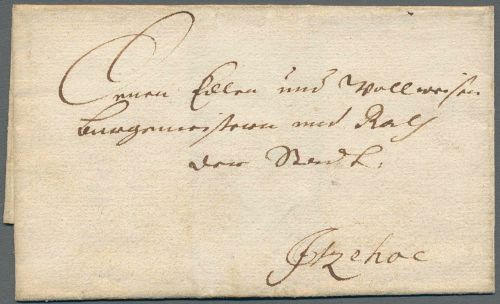 Denen Edlen und Wollweisen
Burgemeistern und Rath
der Stadt.
Itzehoe